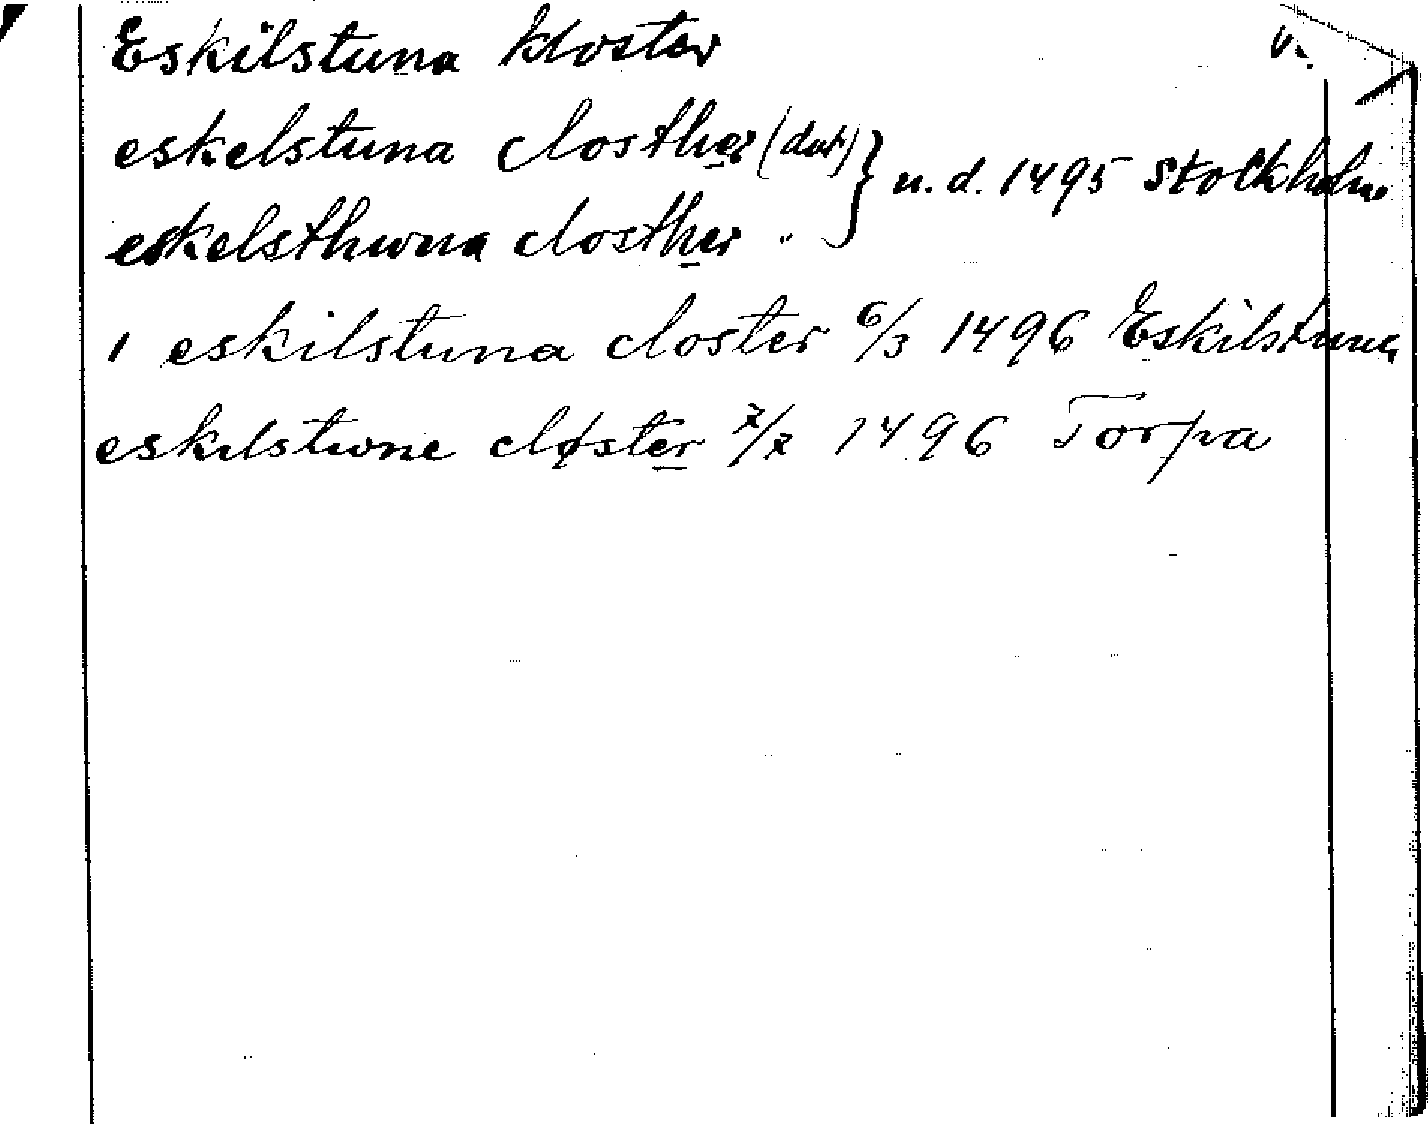 Eskilstuna kloster v.
eskelstuna closther (dat) } u. d. 1495 Stockholm
eskelsthwna closther "
i eskilstuna closter 6/3 1496 Eskilstuna
eskilstwne closter 7/7 1496 Torpa